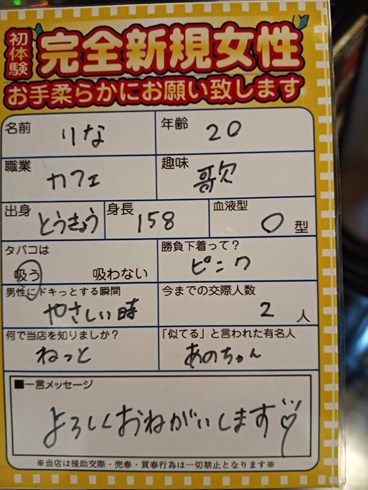 初体験
完全新規女性
お手柔らかにお願い致します
名前 りな 年齢 20
職業 カフェ 趣味 歌
出身 とうきょう 身長 158 血液型 O 型
タバコは 吸う 吸わない 勝負下着って? ピンク
男性にドキっとする瞬間 やさしい時 今までの交際人数 2 人
何で当店を知りましたか? ねっと 「似てる」と言われた有名人 あのちゃん
■一言メッセージ
よろしくおねがいします♡
※当店は援助交際・売春・買春行為は一切禁止となります※